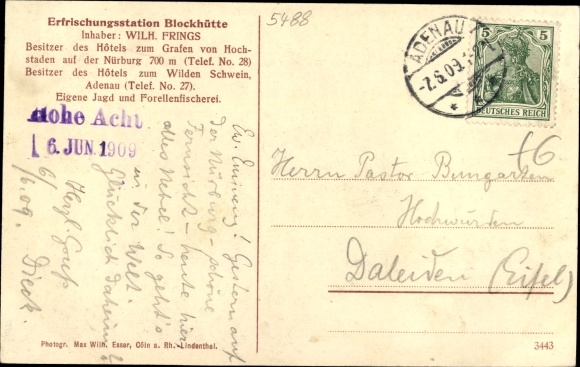 Erfrischungsstation Blockhütte
Inhaber: WILH. FRINGS
Besitzer des Hôtels zum Grafen von Hoch-
staden auf der Nürburg 700 m (Telef. No. 28)
Besitzer des Hôtels zum Wilden Schwein,
Adenau (Telef. No. 27).
Eigene Jagd und Forellenfischerei.
Hohe Acht
6. JUN. 1909
Ew. Eminenz! Gestern auf
der Nürburg – schöne
Fernsicht – heute hier
alles Nebel! So geht's
in der Welt.
Glücklich daheim
Herzl. Gruß
6/6.09. Dieck.
5488
ADENAU
-7.6.09.
5 5
DEUTSCHES REICH
Herrn Pastor Bungarten
Hochwürden
Daleiden (Eifel)
Photogr. Max Wilh. Esser, Cöln a. Rh.-Lindenthal.
3443